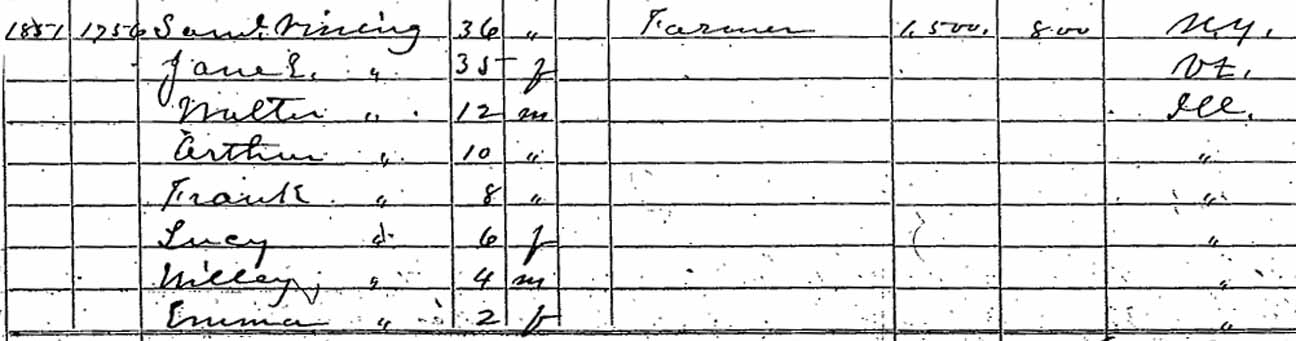 1851 1756 Saml. Vining 36 " Farmer 1,500. 800 N.Y.
Jane E. " 35 f Vt.
Walter " 12 m Ill.
Arthur " 10 " "
Frank " 8 " "
Lucy " 6 f "
Willey " 4 m "
Emma " 2 f "